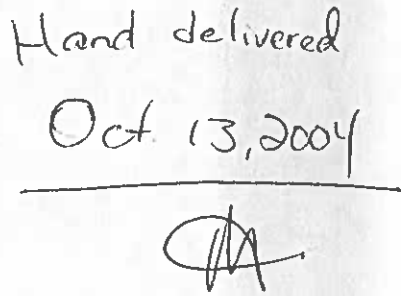 Hand delivered
Oct. 13, 2004